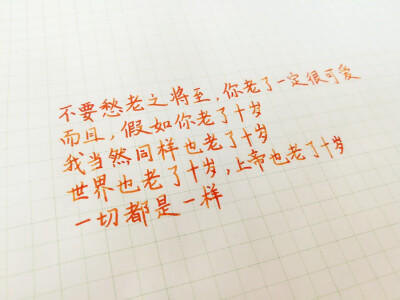 不要愁老之将至，你老了一定很可爱
而且，假如你老了十岁
我当然同样也老了十岁
世界也老了十岁，上帝也老了十岁
一切都是一样